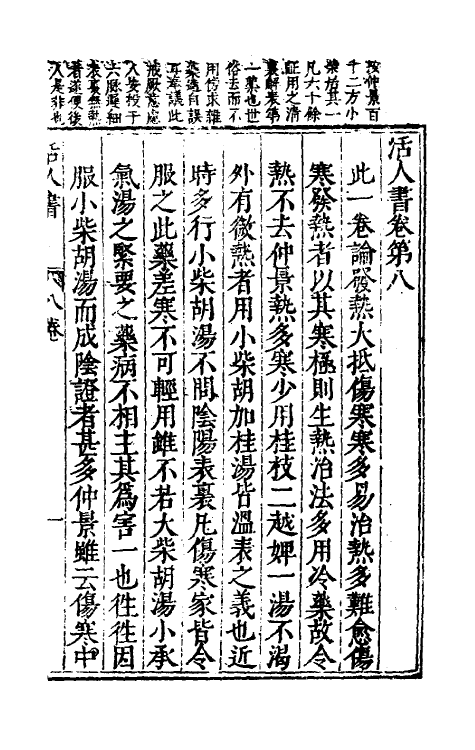 活人書卷第八
此一卷論發熱大抵傷寒寒多易治熱多難愈傷
寒發熱者以其寒極則生熱治法多用冷藥故令
熱不去仲景熱多寒少用桂枝二越婢一湯不渴
外有微熱者用小柴胡加桂湯皆溫表之義也近
時多行小柴胡湯不問陰陽表裏凡傷寒家皆令
服之此藥差寒不可輕用雖不若大柴胡湯小承
氣湯之緊要之藥病不相主其爲害一也徃徃因
服小柴胡湯而成陰證者甚多仲景雖云傷寒中
按仲景百
十二方小
柴胡其一
凡六十餘
証用之清
裏解表第
一藥也世
俗去而不
用傍求雜
藥適自誤
耳
戒厥
人
六
表裏無熱
者遂便後
人是非也
活人書
八卷
一